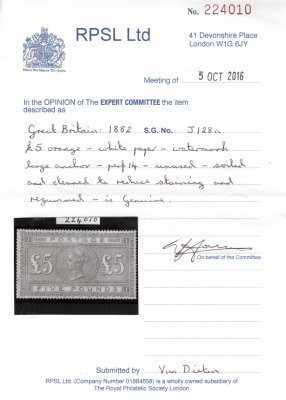 No. 224010
RPSL Ltd
41 Devonshire Place
London W1G 6JY
Meeting of 5 OCT 2016
In the OPINION of The EXPERT COMMITTEE the item
described as
Great Britain: 1882 S.G. No. J128a
£5 orange - white paper - watermark
large anchor - perf 14 - unused - soiled
and cleaned to reduce staining and
regummed - is genuine.
224010
POSTAGE
£5 £5
FIVE POUNDS
On behalf of the Committee
Submitted by Van Dieten
RPSL Ltd. (Company Number 01684658) is a wholly owned subsidiary of
The Royal Philatelic Society London.